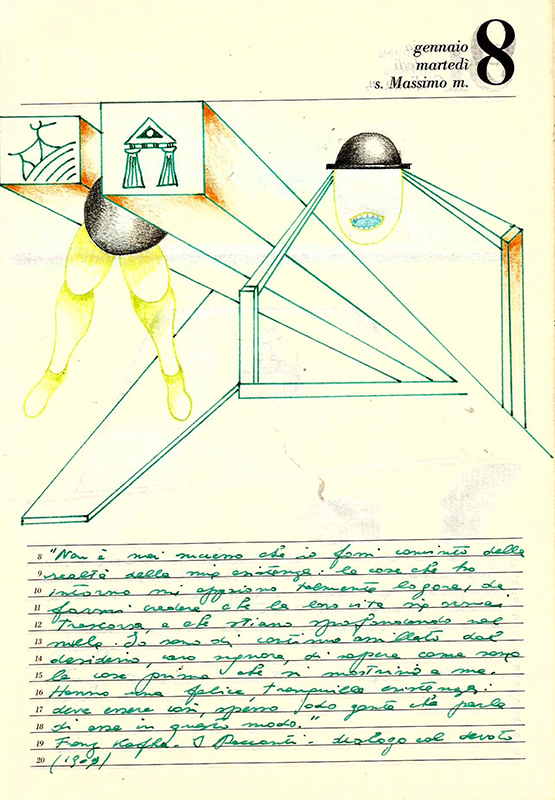 8
gennaio
martedì
s. Massimo m.
8 "Non è mai successo che io fossi convinto della
9 realtà della mia esistenza: le cose che ho
10 intorno mi appaiono talmente logore, da
11 farmi credere che la loro vita sia ormai
12 trascorsa, e che stiano sprofondando nel
13 nulla. Io sono di continuo assillato dal
14 desiderio, caro signora, di sapere come sono
15 le cose prima che si mostrino a me.
16 Hanno una felice, tranquilla esistenza:
17 deve essere così, spesso odo gente che parla
18 di esse in questo modo."
19 Franz Kafka - I Racconti - dialogo col devoto
20 (1909)